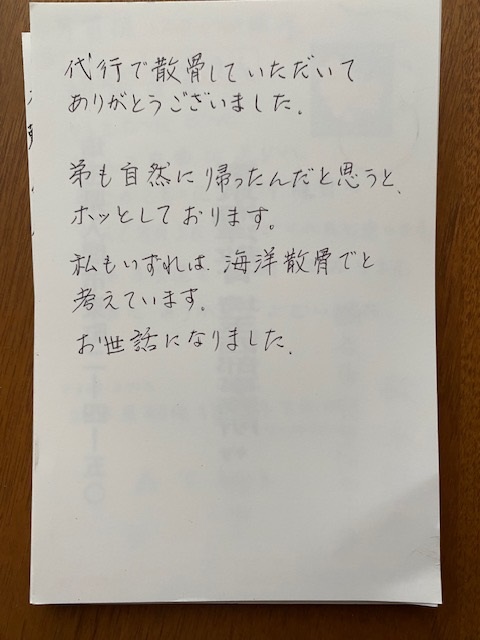 代行で散骨していただいて
ありがとうございました.
弟も自然に帰ったんだと思うと、
ホッとしております。
私もいずれは、海洋散骨でと
考えています。
お世話になりました.